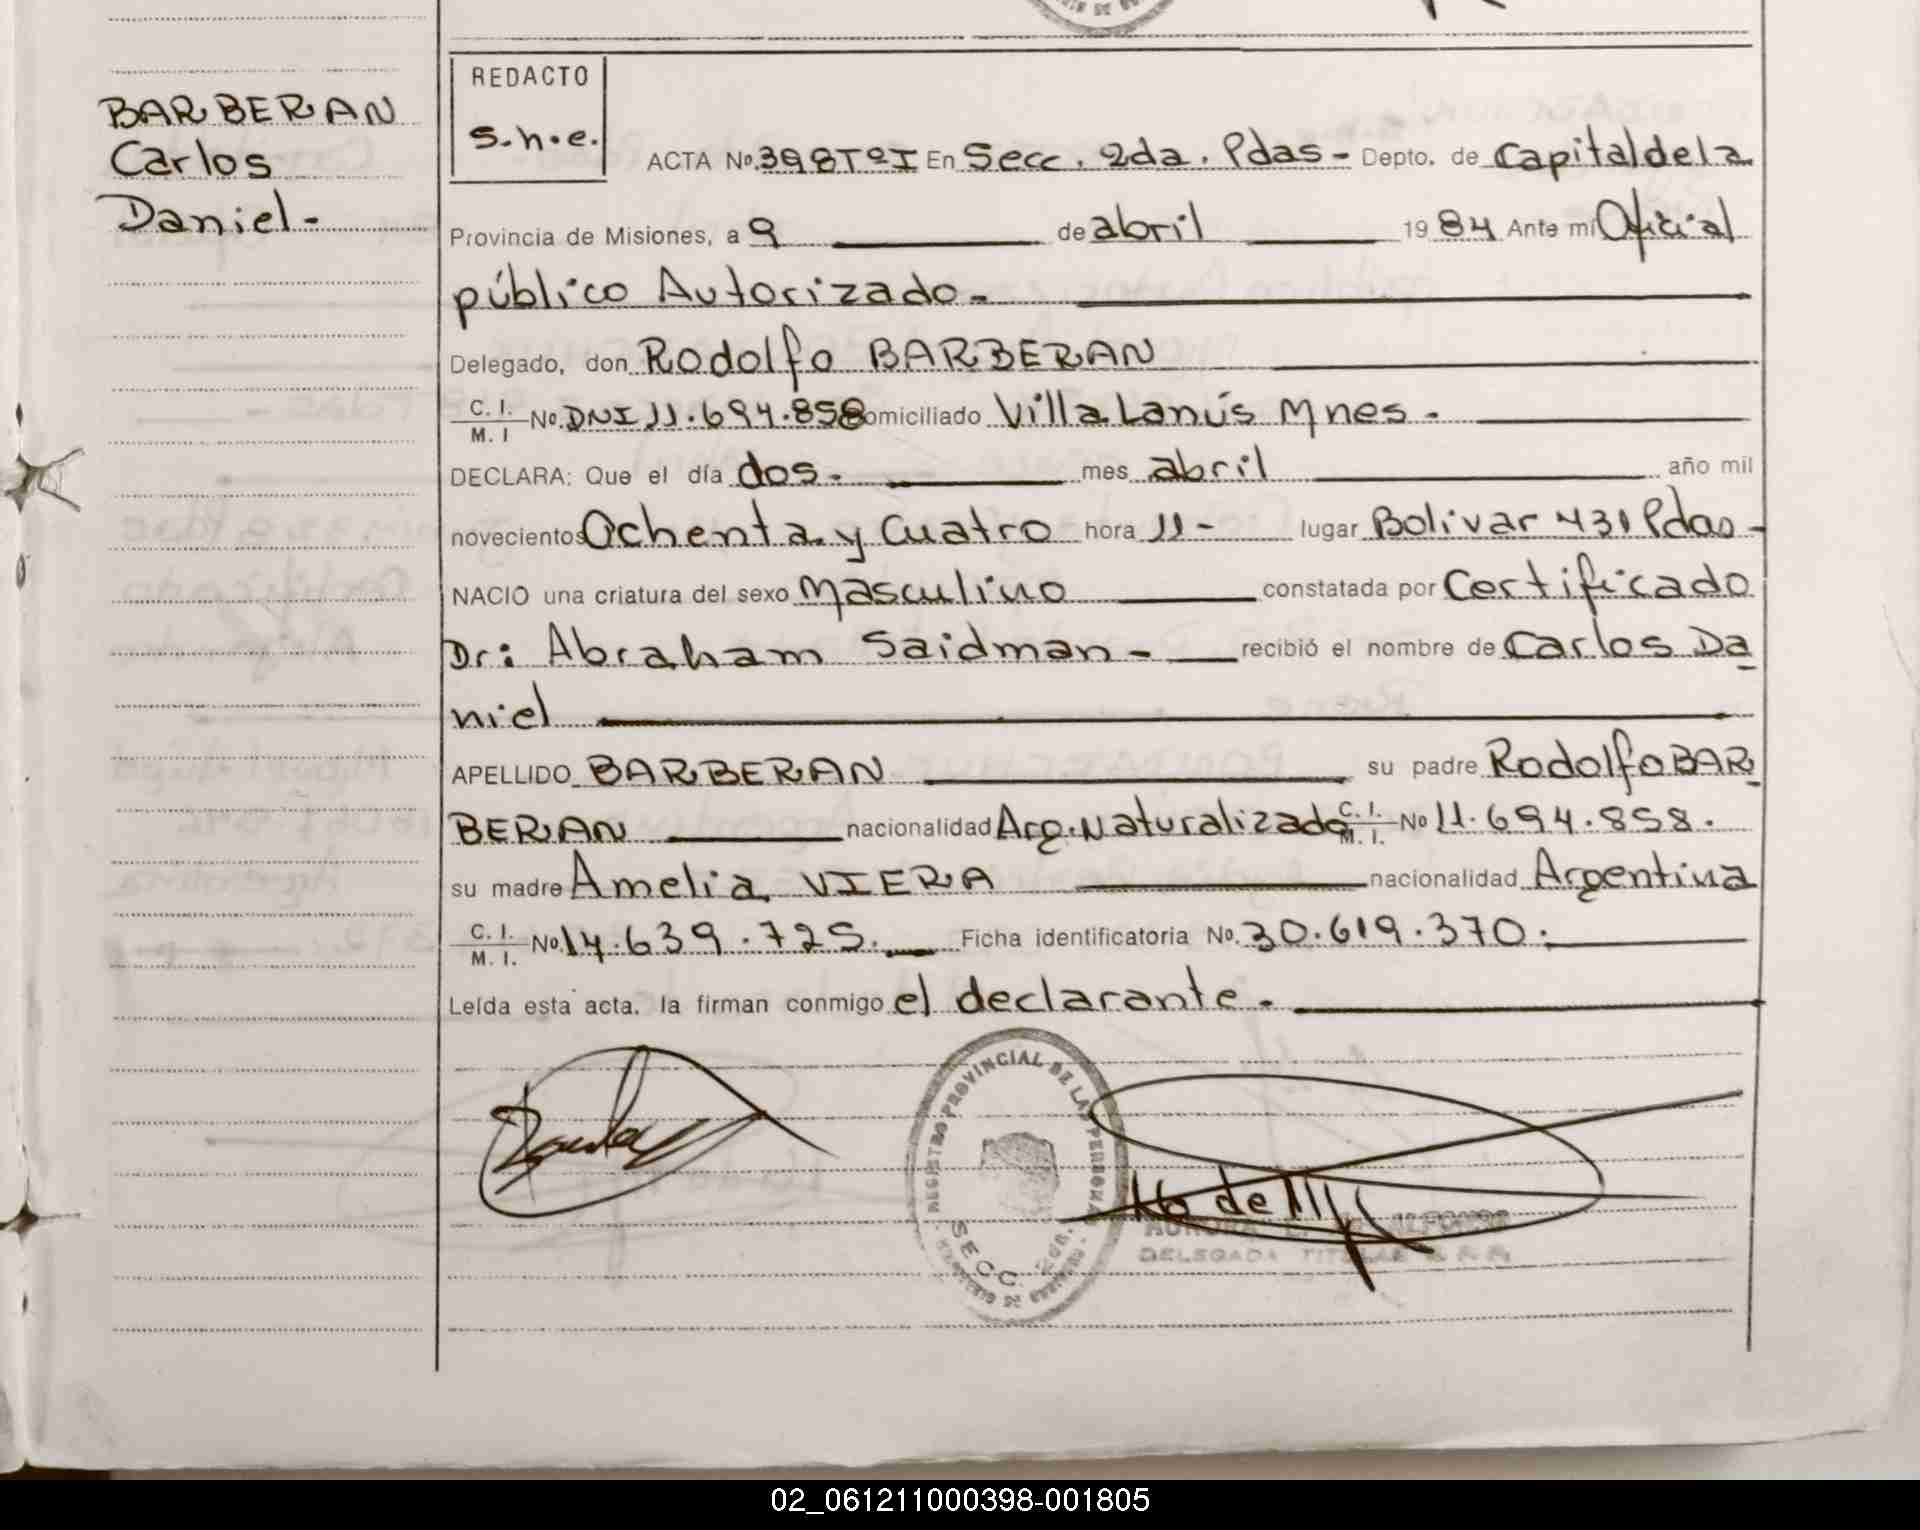 BARBERAN
Carlos
Daniel-
REDACTO
S.h.e.
ACTA No. 398 Tº I En Secc. 2da. Pdas- Depto. de Capital de la
Provincia de Misiones, a 9 de abril 1984 Ante mí Oficial
público Autorizado-
Delegado, don Rodolfo BARBERAN
C. I. M. I No. DNI 11.694.858 omiciliado Villa Lanús Mnes.
DECLARA: Que el día dos. mes abril año mil
novecientos Ochenta y Cuatro hora 11- lugar Bolivar 431 Pdas-
NACIO una criatura del sexo Masculino constatada por Certificado
Dr: Abraham Saidman- recibió el nombre de Carlos Da
niel
APELLIDO BARBERAN su padre Rodolfo BAR
BERAN nacionalidad Arg. Naturalizado C. I. M. I. No 11.694.858.
su madre Amelia VIERA nacionalidad Argentina
C. I. M. I. No. 14.639.725. Ficha identificatoria No. 30.619.370.
Leída esta acta, la firman conmigo el declarante.
REGISTRO PROVINCIAL DE LAS PERSONAS
SECC. 2da.
ALFONSO
DELEGADA TITULAR
02_061211000398-001805